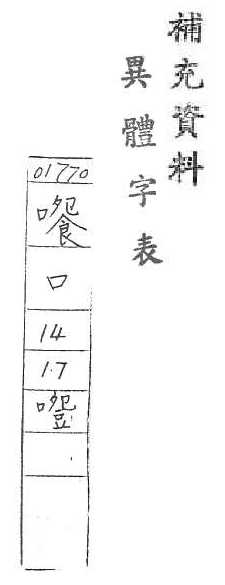 補充資料
異體字表
01770
噮
口
14
17